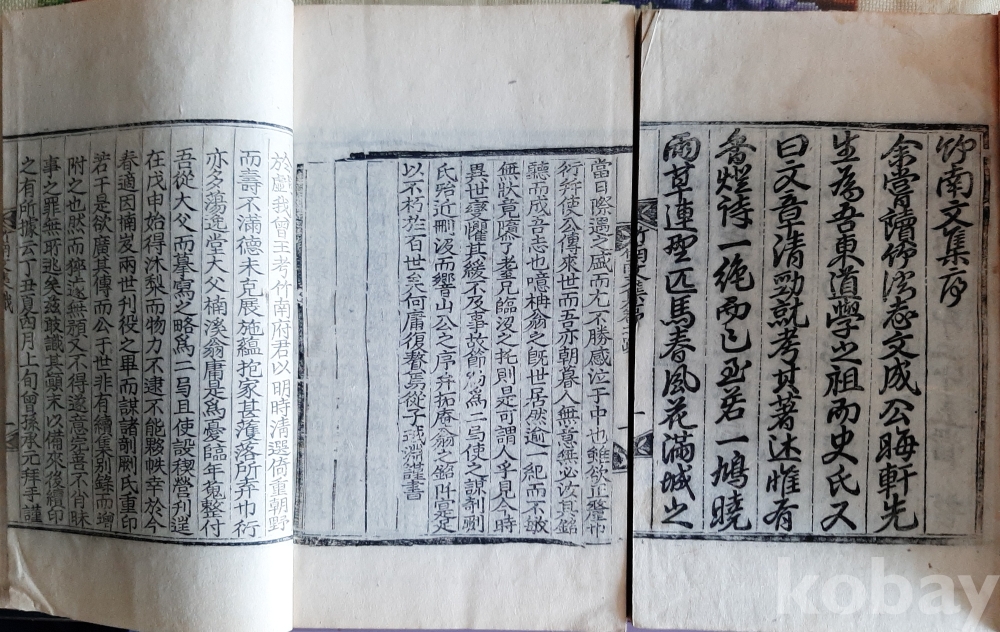 竹南文集序
余嘗讀竹溪志文成公晦軒先
生爲吾東道學之祖而史氏又
曰文章清勁就考其著述惟有
香燈詩一絶而已至若一鳩曉
雨草連野匹馬春風花滿城之
當日際遇之盛而尤不勝感泣于中也雖欲
行幷使公傳來世而吾亦朝暮人無意無必汝其銘
聽而成吾志也噫栴翁之旣世居然逾一紀而不敏
無狀竟隳了耋臨沒之托則是可謂人乎見今時
異世變懼其緩不及事故節約爲二局使之謀剞劂
氏殆近刪沒而響山公之序幷拓庵翁之銘幷寔足
以不朽於百世矣何庸復贅焉從子 淵謹書
於戲我曾王考竹南府君以明時清選倚重朝野
而壽不滿德未克展施蘊抱家甚濩落所弆巾衍
亦多蕩逸堂大父楠溪翁庸是爲憂臨年寃整付
吾從大父而摹寫之略爲二局且使設稧營刋遂
在戊申始得沐梨而物力不逮不能夥帙幸於今
春適因楠岌兩世刋役之畢而謀諸剞劂氏重印
若干是欲廣其傳而公于世非有續集別錄而增
附之也然而猥茫無顏又不得遂意完善不肖昧
事之罪無所逃矣玆敢識其顚末以備來後續印
之有所據云丁丑夏四月上旬曾孫承元拜手謹
識
kobay